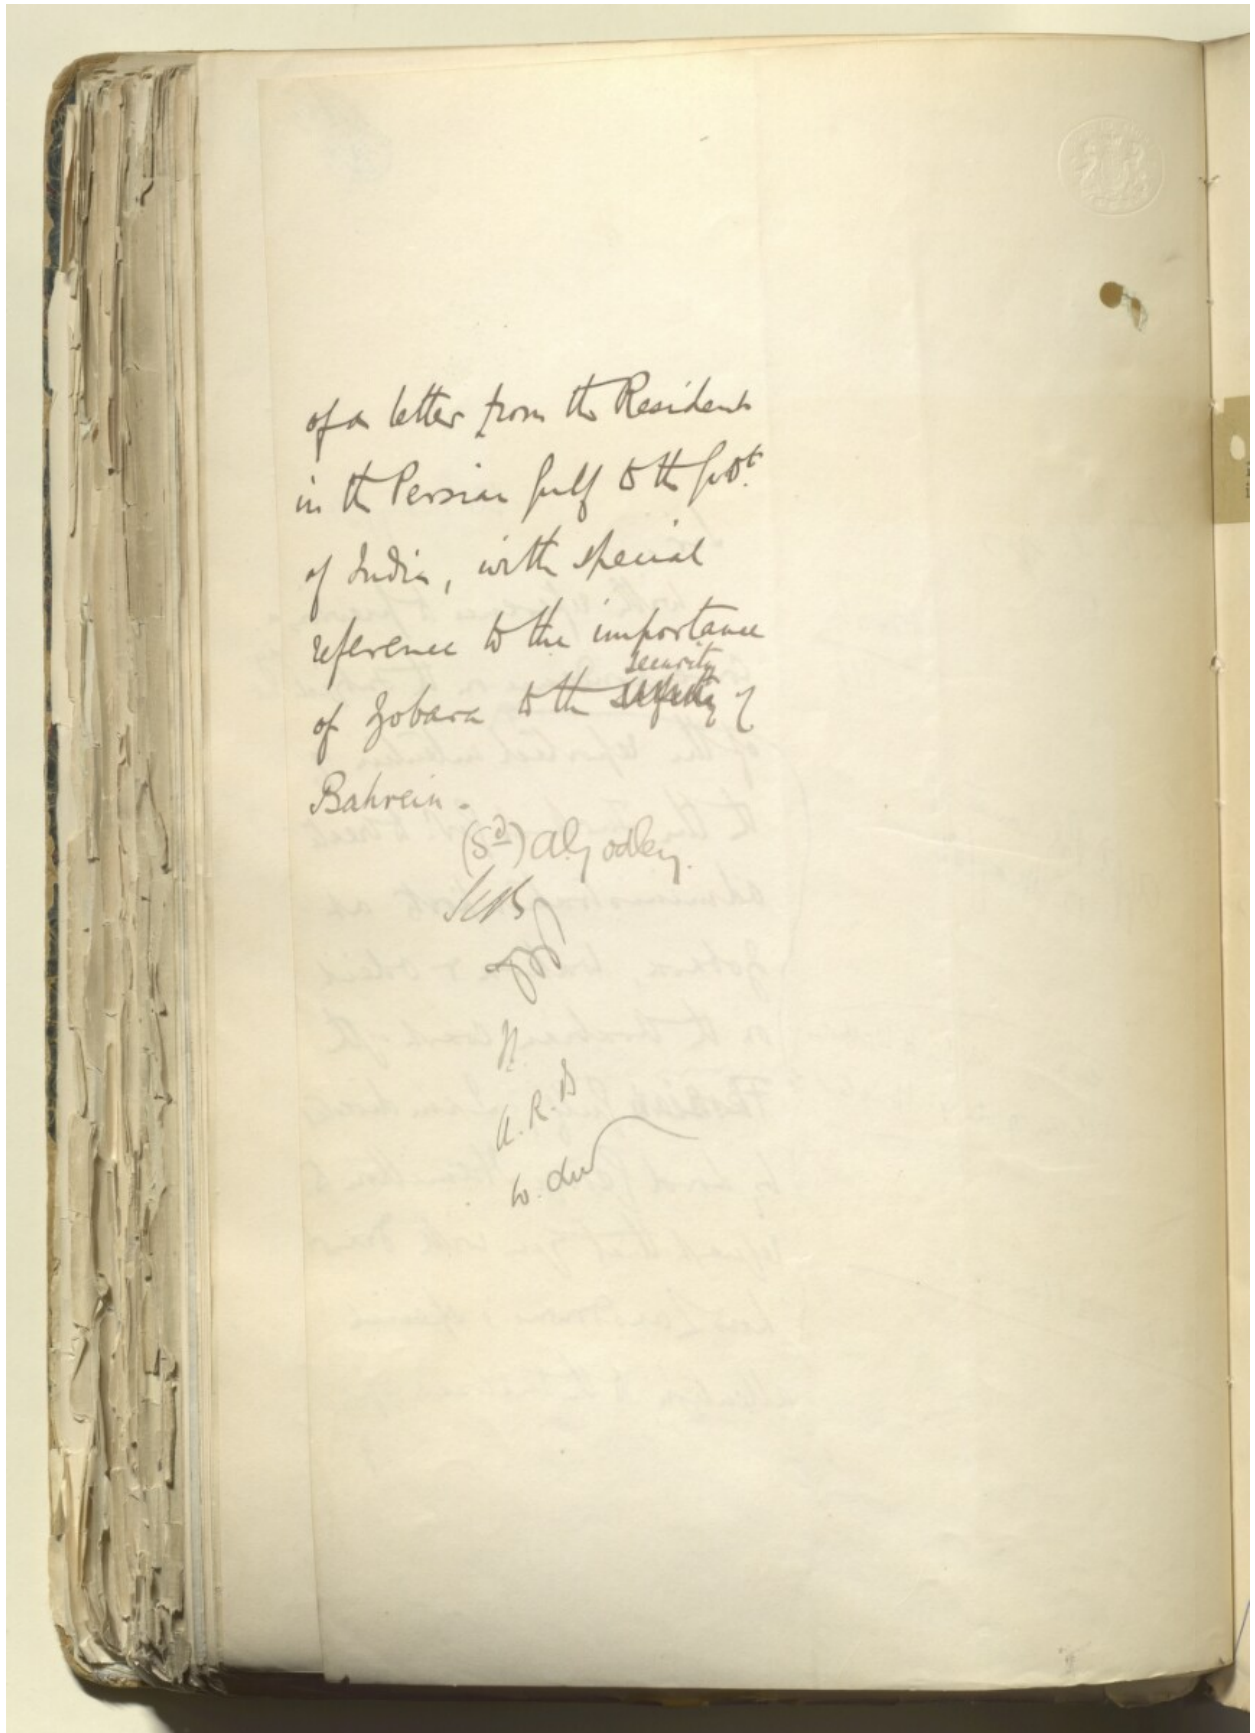 of a letter from the Resident
in the Persian Gulf to the Govt.
of India, with special
reference to the importance
security
of Zobara to the of
Bahrein.
(Sd) A Godley.
H.
A. R. D